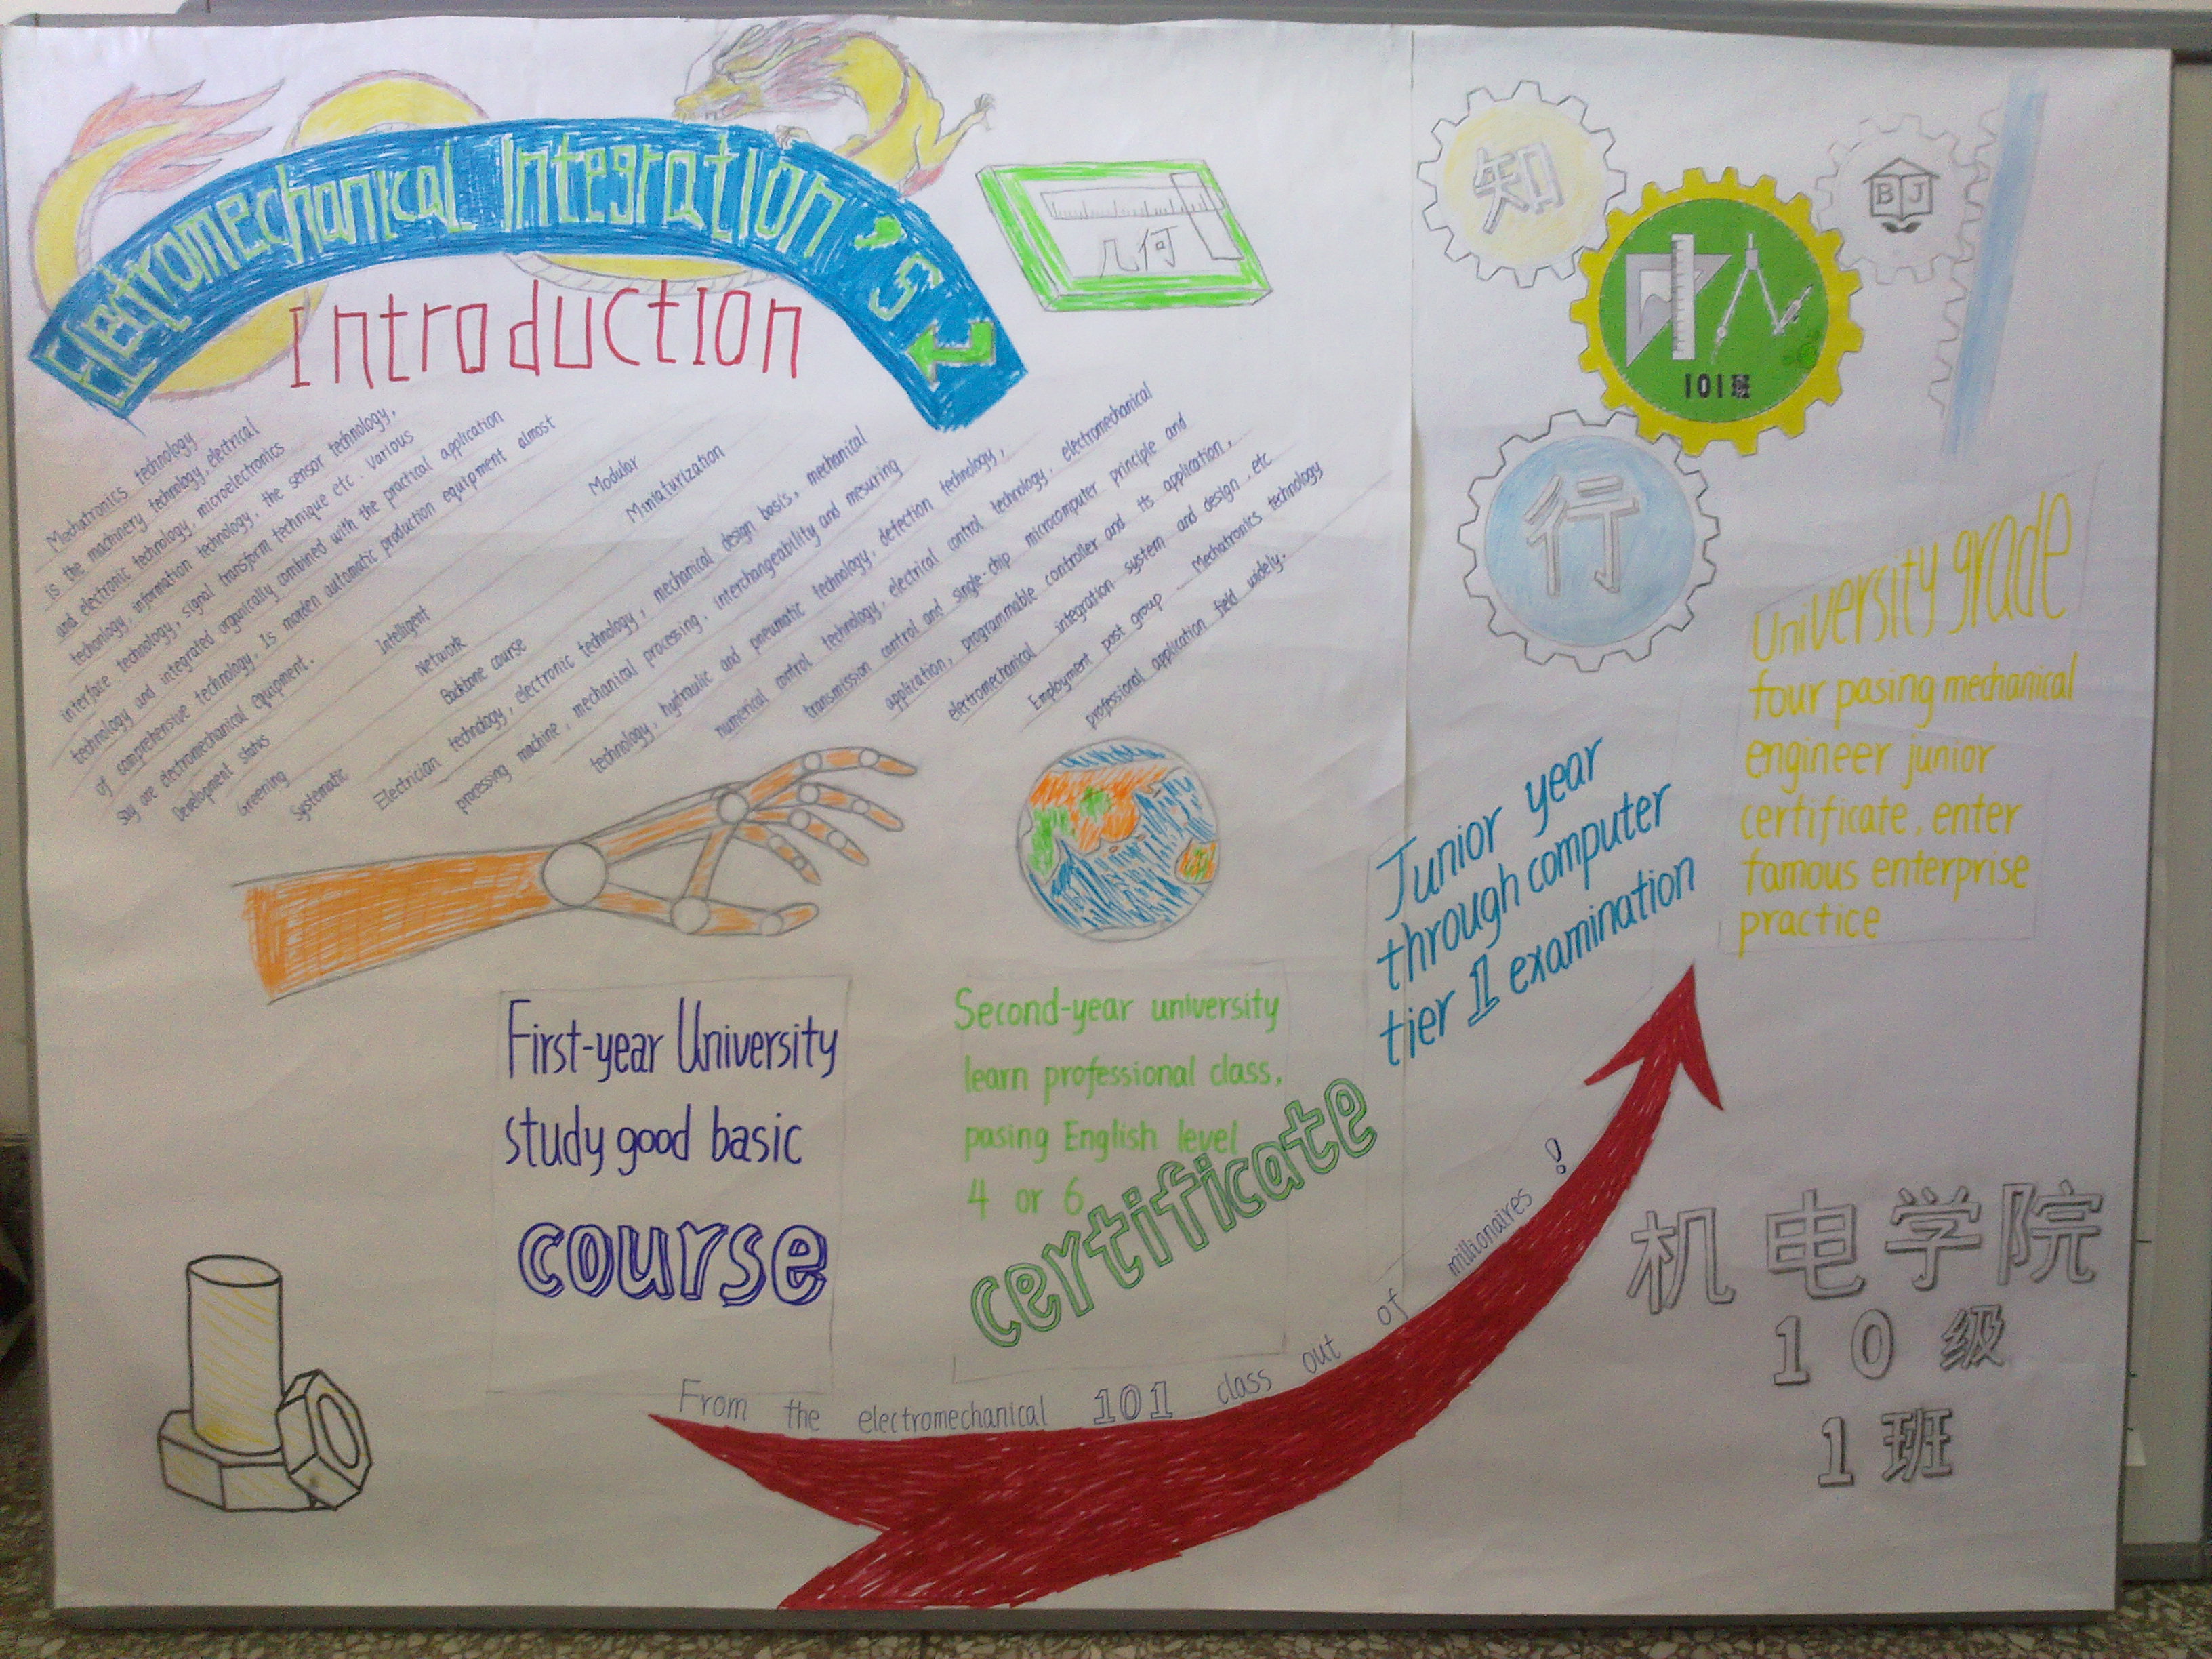 Electromechanical Integration's
Introduction
几何
知
BJ
101班
行
Mechatronics technology
is the machinery technology, electrical
and electronic technology, microelectronics
technology, information technology, the sensor technology,
interface technology, signal transform technique etc. Various
technology and integrated organically combined with the practical application
of comprehensive technology. Is morden automatic production equipment almost
say are electromechanical equipment.
Development status
Greening
Systematic
Intelligent
Network
Modular
Miniaturization
Backbone course
Electrician technology, electronic technology, mechanical design basis, mechanical
processing machine, mechanical processing, interchangeability and mesuring
technology, hydraulic and pneumatic technology, detection technology,
numerical control technology, electrical control technology, electromechanical
transmission control and single-chip microcomputer principle and
application, programmable controller and its application,
electromechanical integration system and design, etc
Employment post group
Mechatronics technology
professional application field widely.
First-year University
study good basic
course
Second-year university
learn professional class,
pasing English level
4 or 6
certificate
Junior year
through computer
tier 1 examination
University grade
four pasing mechanical
engineer junior
certificate, enter
famous enterprise
practice
From the electromechanical 101 class out of millionaires !
机电学院
10级
1班